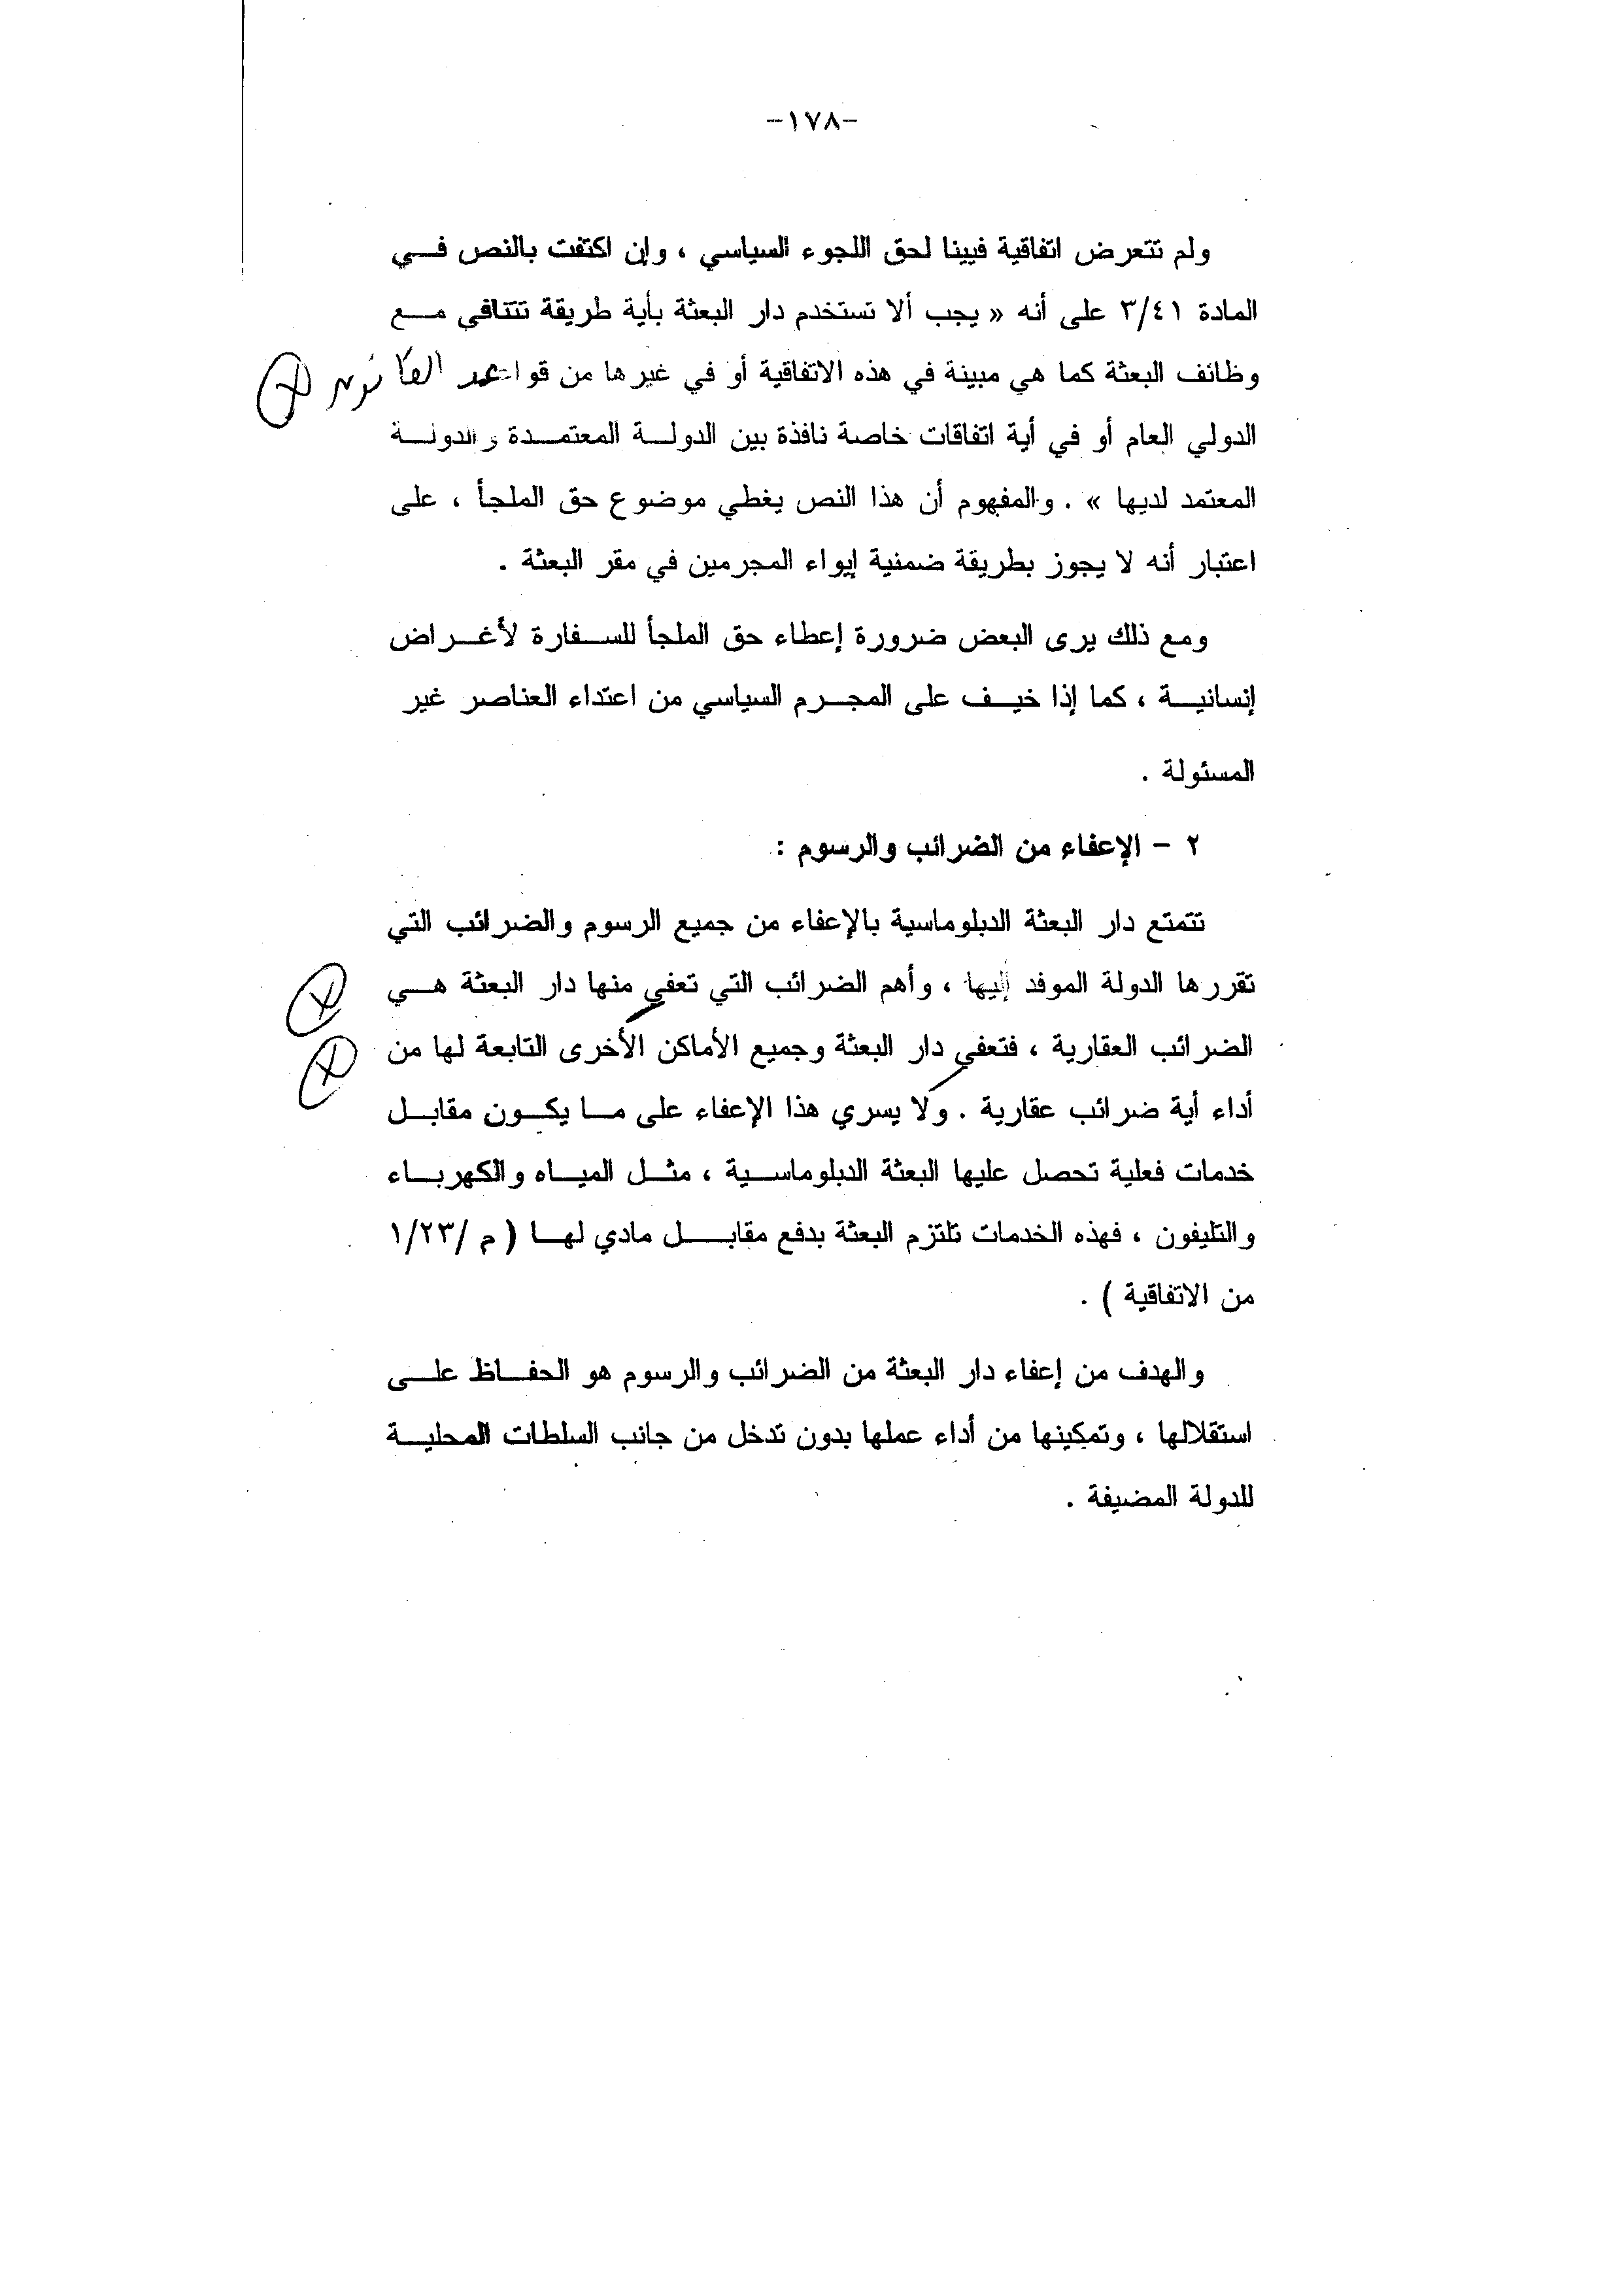 -١٧٨-
ولم تتعرض اتفاقية فيينا لحق اللجوء السياسي ، وإن اكتفت بالنص في
المادة ٣/٤١ على أنه « يجب ألا تستخدم دار البعثة بأية طريقة تتنافي مع
وظائف البعثة كما هي مبينة في هذه الاتفاقية أو في غيرها من قواعد القانون
الدولي العام أو في أية اتفاقات خاصة نافذة بين الدولة المعتمدة والدولة
المعتمد لديها » . والمفهوم أن هذا النص يغطي موضوع حق الملجأ ، على
اعتبار أنه لا يجوز بطريقة ضمنية إيواء المجرمين في مقر البعثة .
ومع ذلك يرى البعض ضرورة إعطاء حق الملجأ للسفارة لأغراض
إنسانية ، كما إذا خيف على المجرم السياسي من اعتداء العناصر غير
المسئولة .
٢ - الإعفاء من الضرائب والرسوم :
تتمتع دار البعثة الدبلوماسية بالإعفاء من جميع الرسوم والضرائب التي
تقررها الدولة الموفد إليها ، وأهم الضرائب التي تعفي منها دار البعثة هي
الضرائب العقارية ، فتعفي دار البعثة وجميع الأماكن الأخرى التابعة لها من
أداء أية ضرائب عقارية . ولا يسري هذا الإعفاء على ما يكون مقابل
خدمات فعلية تحصل عليها البعثة الدبلوماسية ، مثل المياه والكهرباء
والتليفون ، فهذه الخدمات تلتزم البعثة بدفع مقابل مادي لها ( م /١/٢٣
من الاتفاقية ) .
والهدف من إعفاء دار البعثة من الضرائب والرسوم هو الحفاظ على
استقلالها ، وتمكينها من أداء عملها بدون تدخل من جانب السلطات المحلية
للدولة المضيفة .